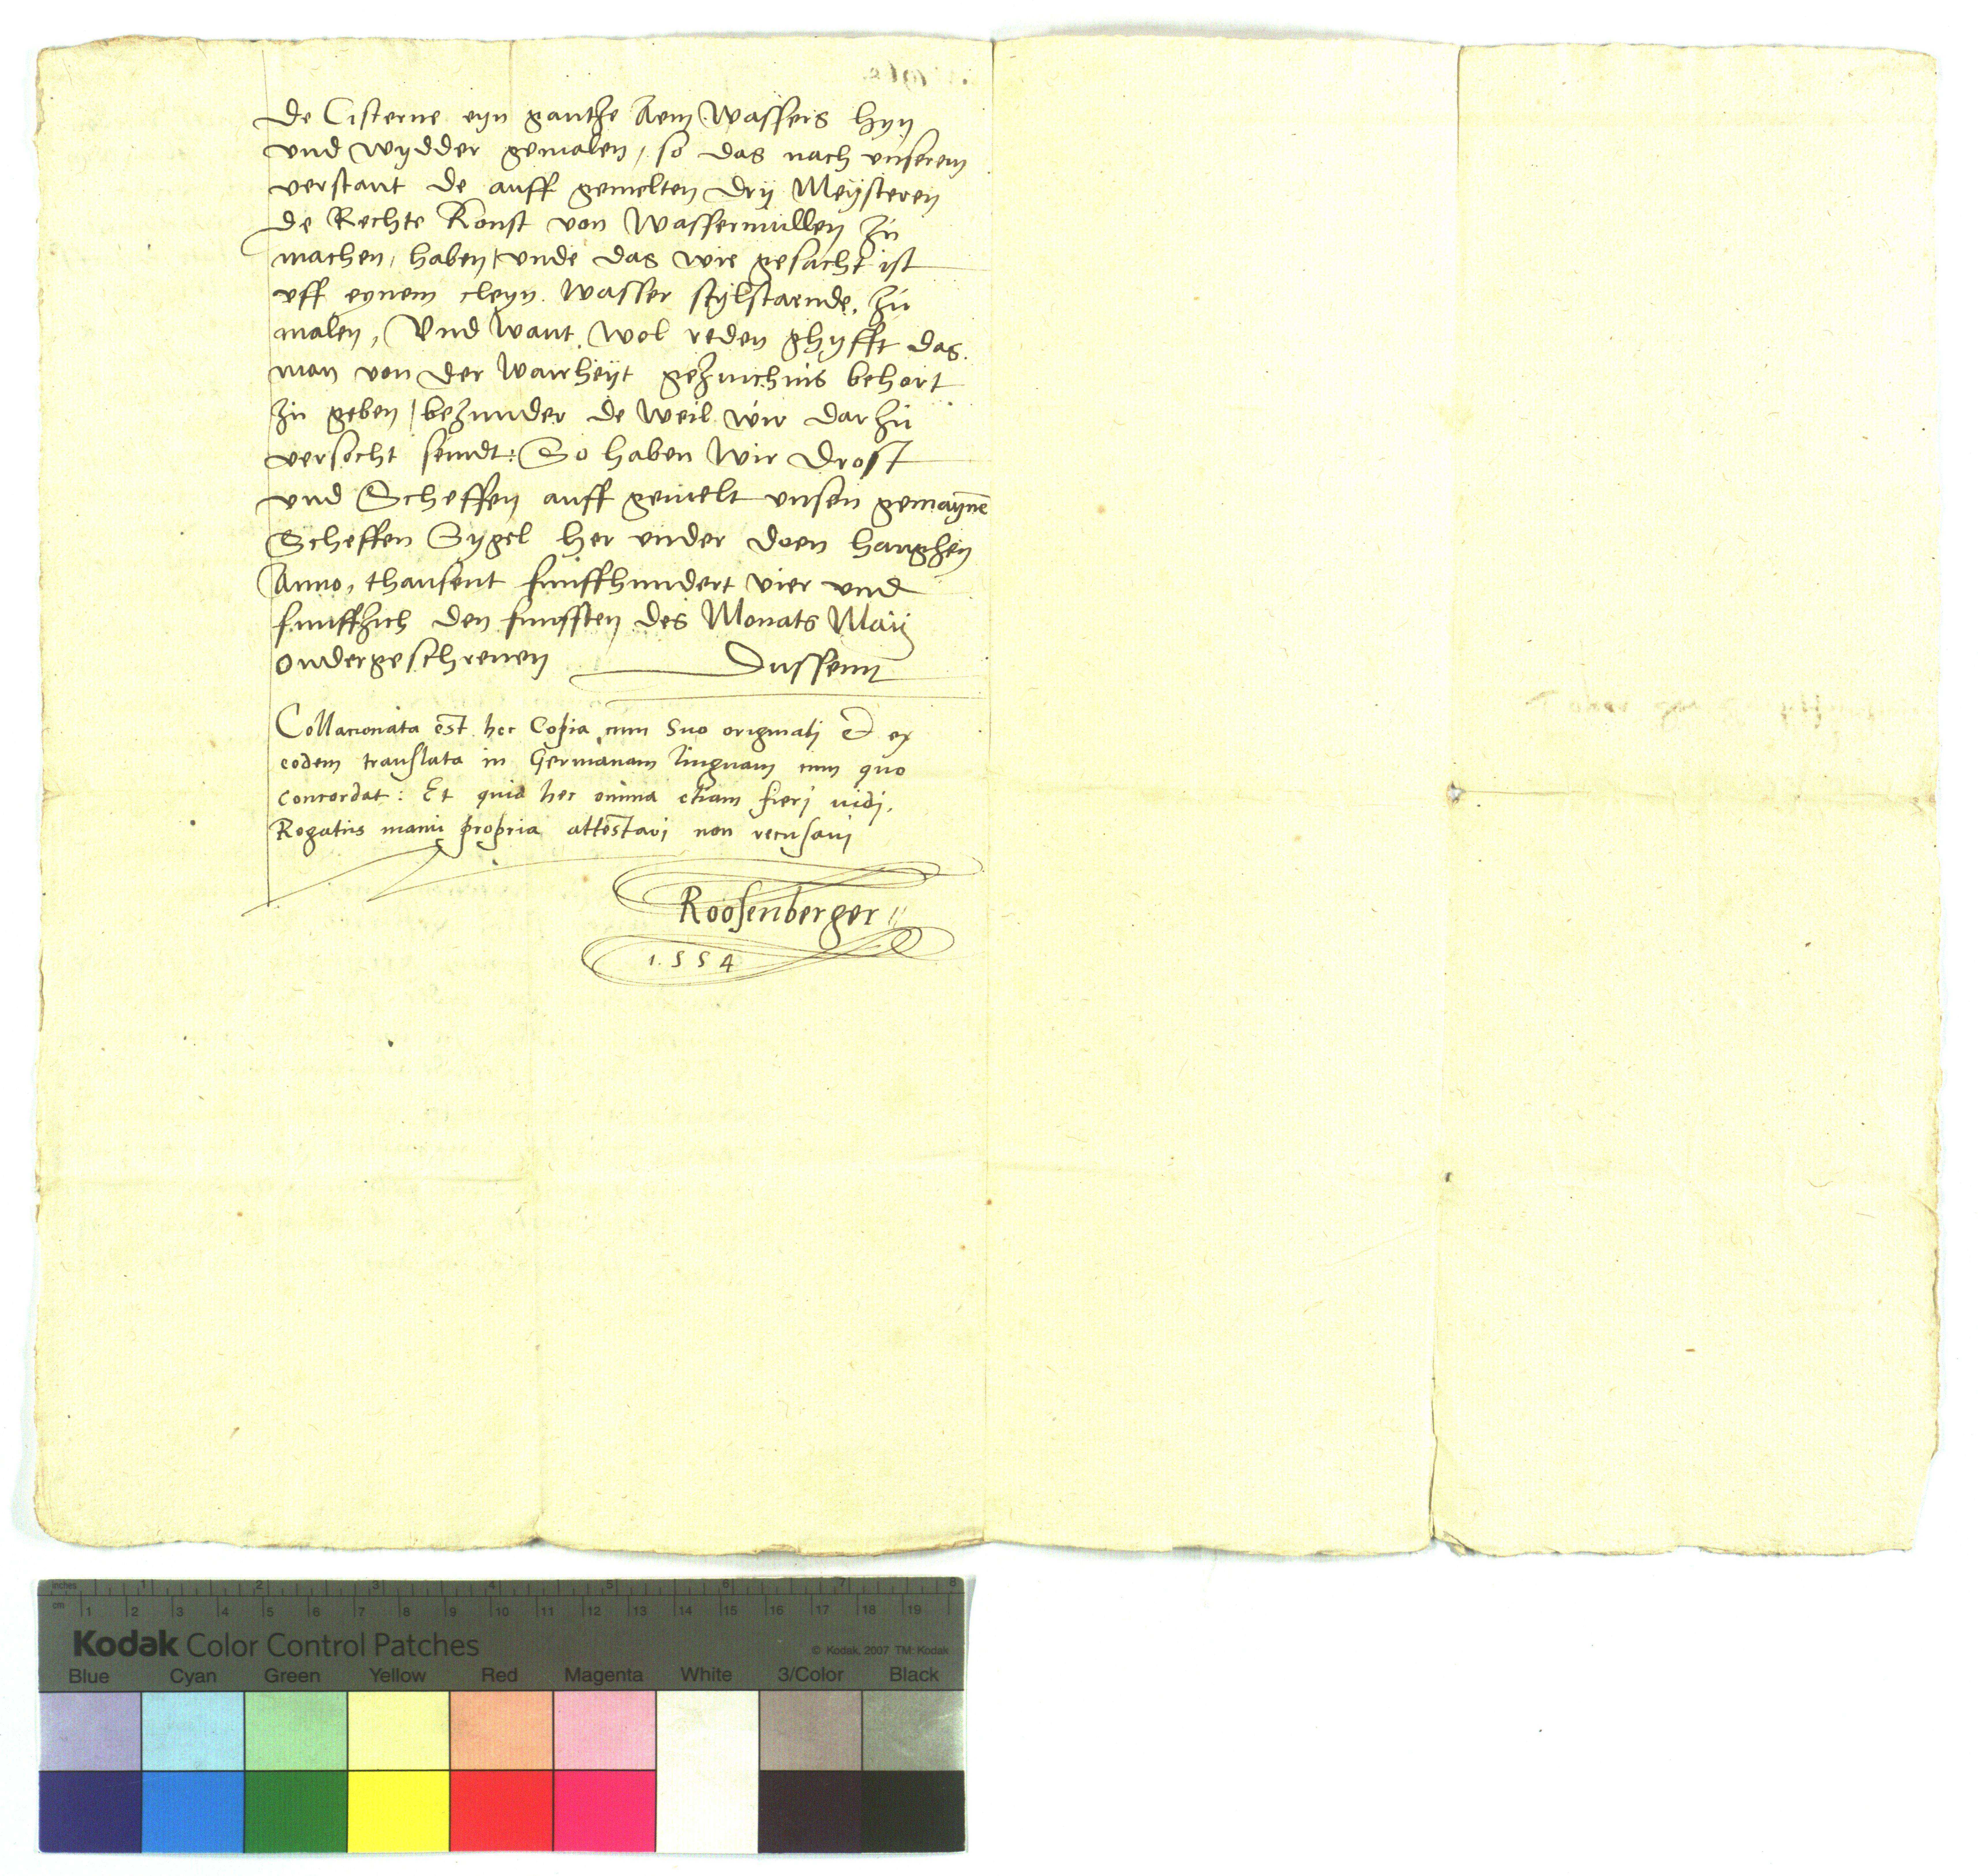 de Cisterne eyn gantze Aem Wassers hyn
und wydder gemalen, so das nach unserem
verstant de auff gemelten dry Meysteren
de Rechte Konst von Wassermullen zu
machen, haben, unde das wie gesacht ist
uff eynem cleyn Wasser stylstaende, zu
malen, Und want wol reden ghyfft das
man von der Warheyt gezuichnis behort
zu geben, bezunder de weil wir dar zu
versocht seindt: So haben wir Drost
und Scheffen auff gemelt unsen gemayne
Scheffen Sygel her under doen hanghen
Anno, thausent funffhundert vier und
funffzich den funfften des Monats Maij
ondergeschreven Dussenn
Collacionata est hec Copia cum suo originali & ex
eodem translata in Germanam linguam cum quo
concordat: Et quia hec omnia etiam fieri vidi,
Rogatus manu propria attestavi non recusavi
Roosenberger
1.554
inches 1 2 3 4 5 6 7 8
cm 1 2 3 4 5 6 7 8 9 10 11 12 13 14 15 16 17 18 19
Kodak Color Control Patches
© Kodak, 2007 TM: Kodak
Blue Cyan Green Yellow Red Magenta White 3/Color Black